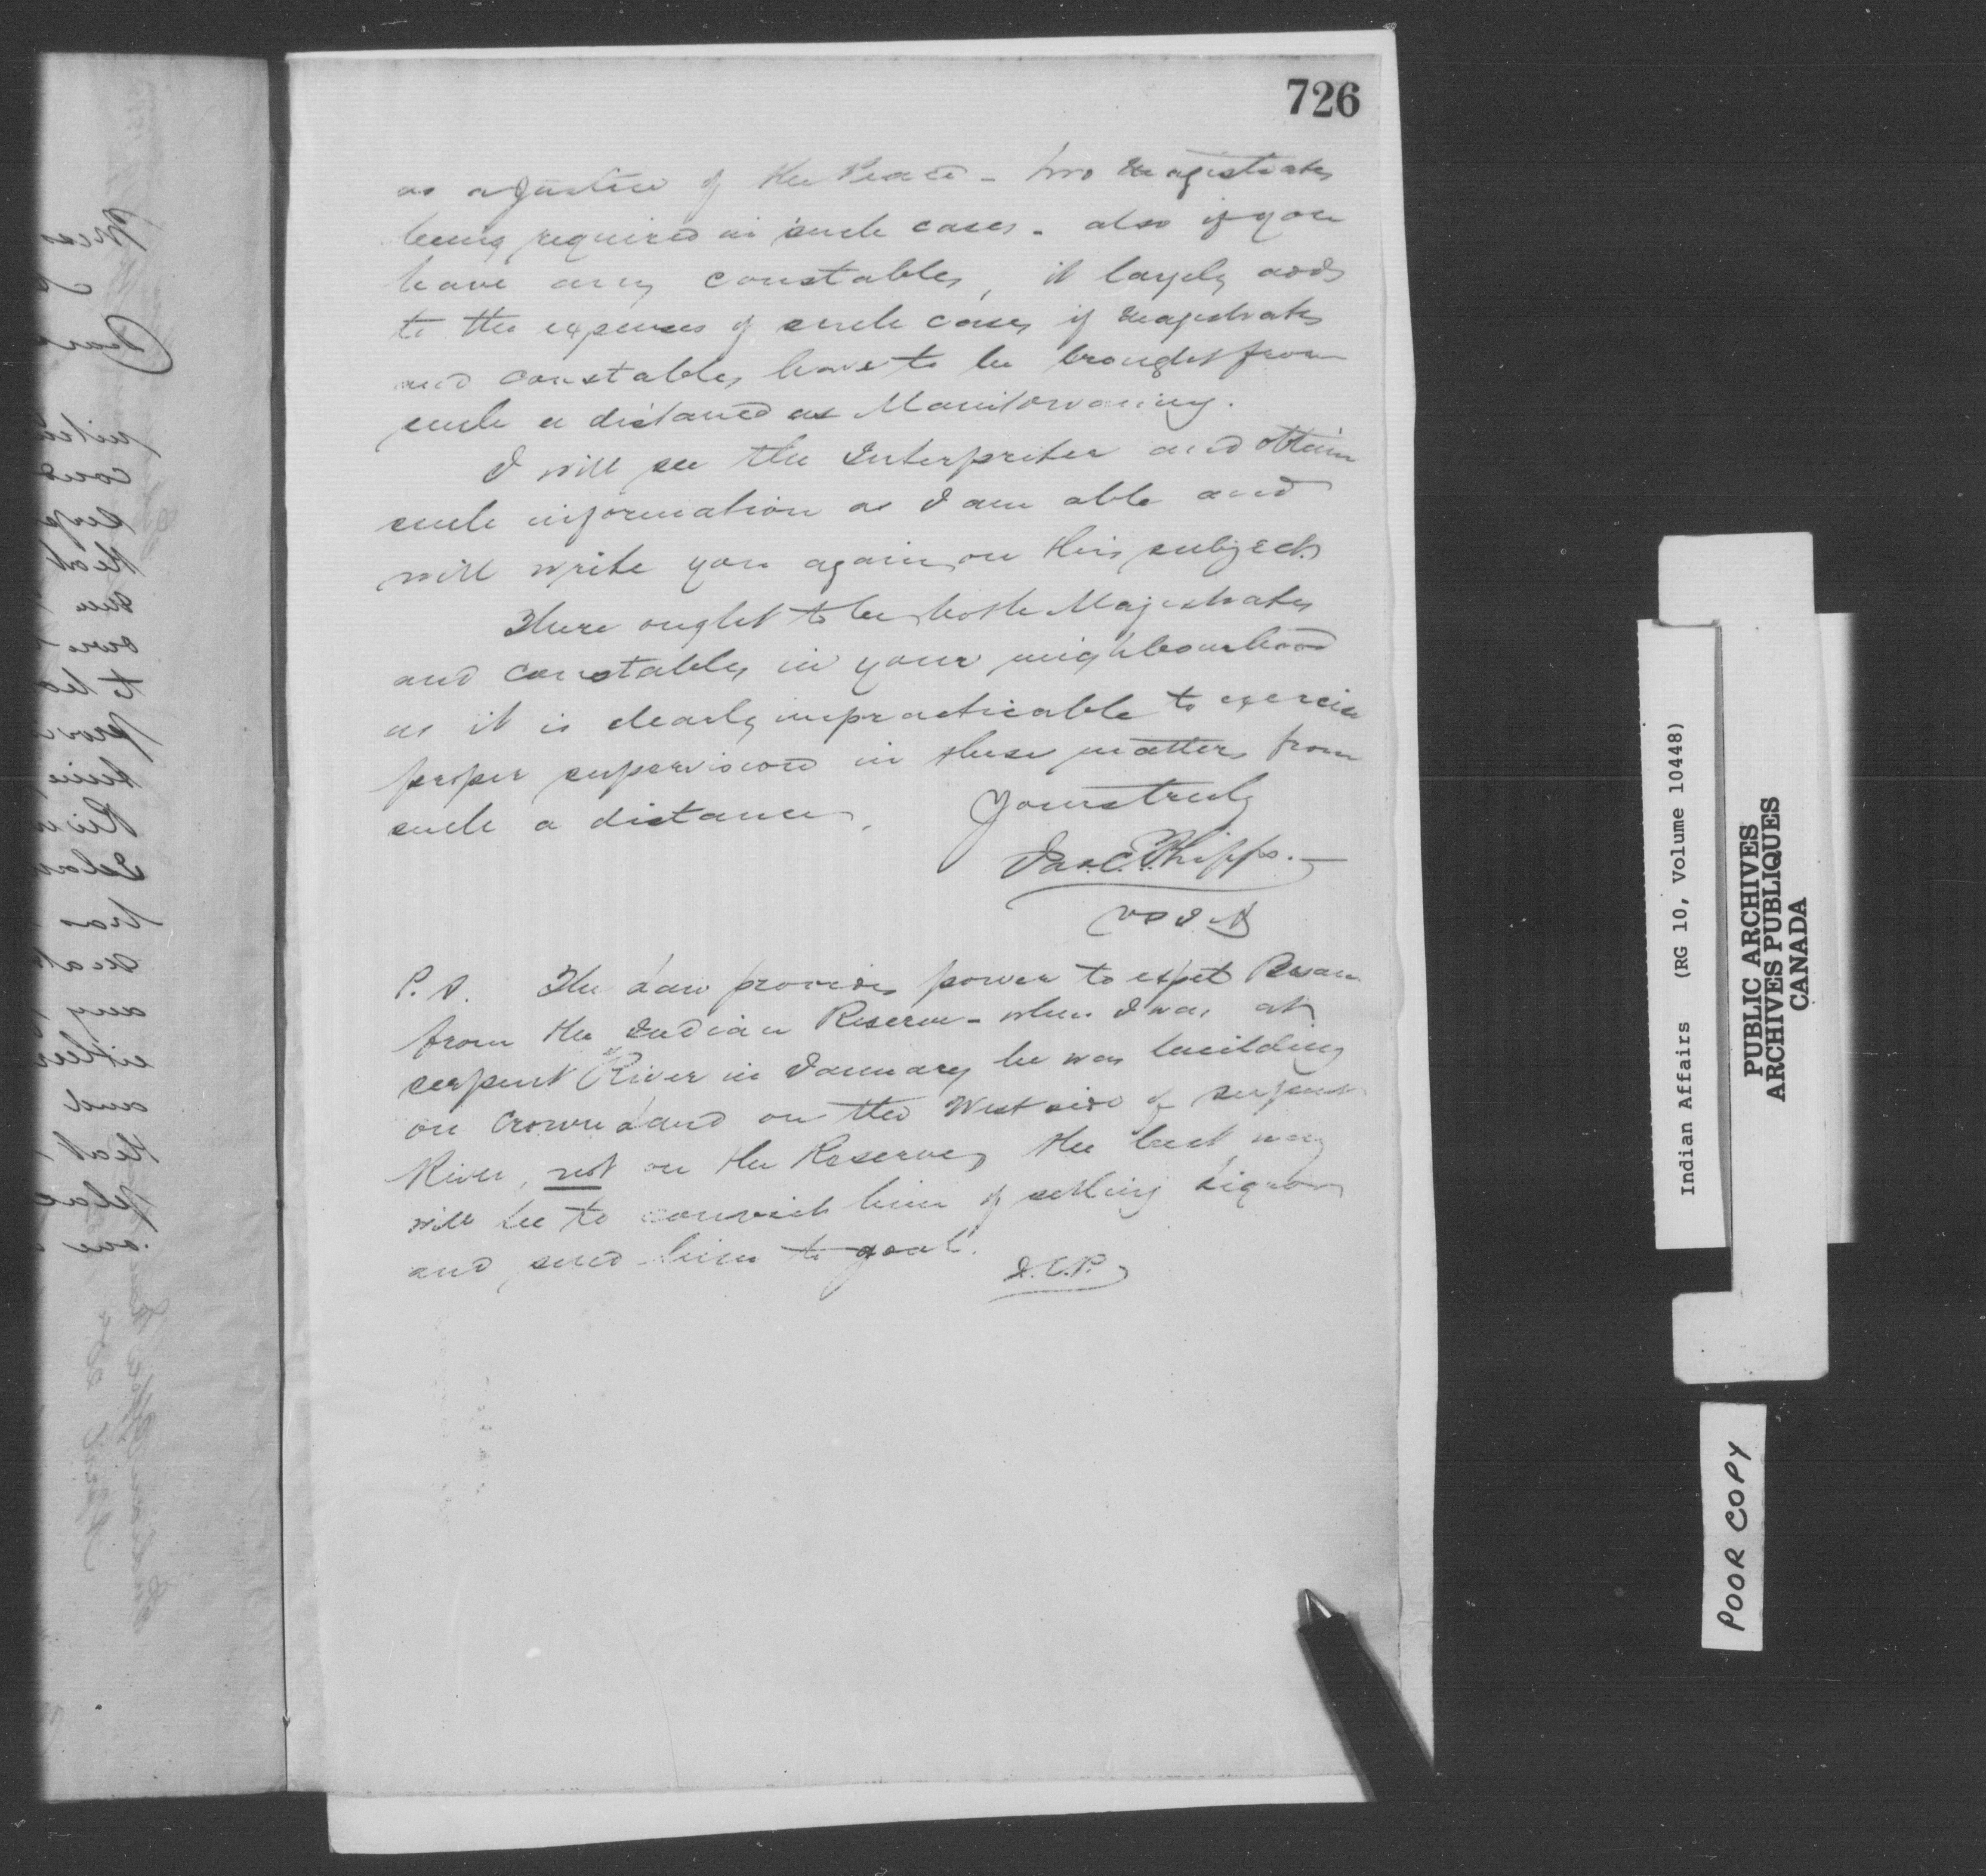 726
as a Justice of the Peace - two Magistrates
being required in such cases - also if you
have any constables, it largely adds
to the expenses of such cases if Magistrates
and constables have to be brought from
such a distance as Manitowaning.
I will see the Interpreter and obtain
such information as I am able and
will write you again on this subject
There ought to be both Magistrates
and constables in your neighbourhood
as it is clearly impracticable to exercise
proper supervision in these matters from
such a distance.
Yours truly
Jas. C. Phipps.
V S I A
P.S. The Law provides power to expel
from the Indian Reserve - when I was at
serpent River in January he was building
on Crown Land on the West side of Serpent
River, not on the Reserve, the best way
will be to convict him of selling Liquor
and send him to goal.
J.C.P.
Indian Affairs (RG 10, Volume 10448)
PUBLIC ARCHIVES
ARCHIVES PUBLIQUES
CANADA
POOR COPY